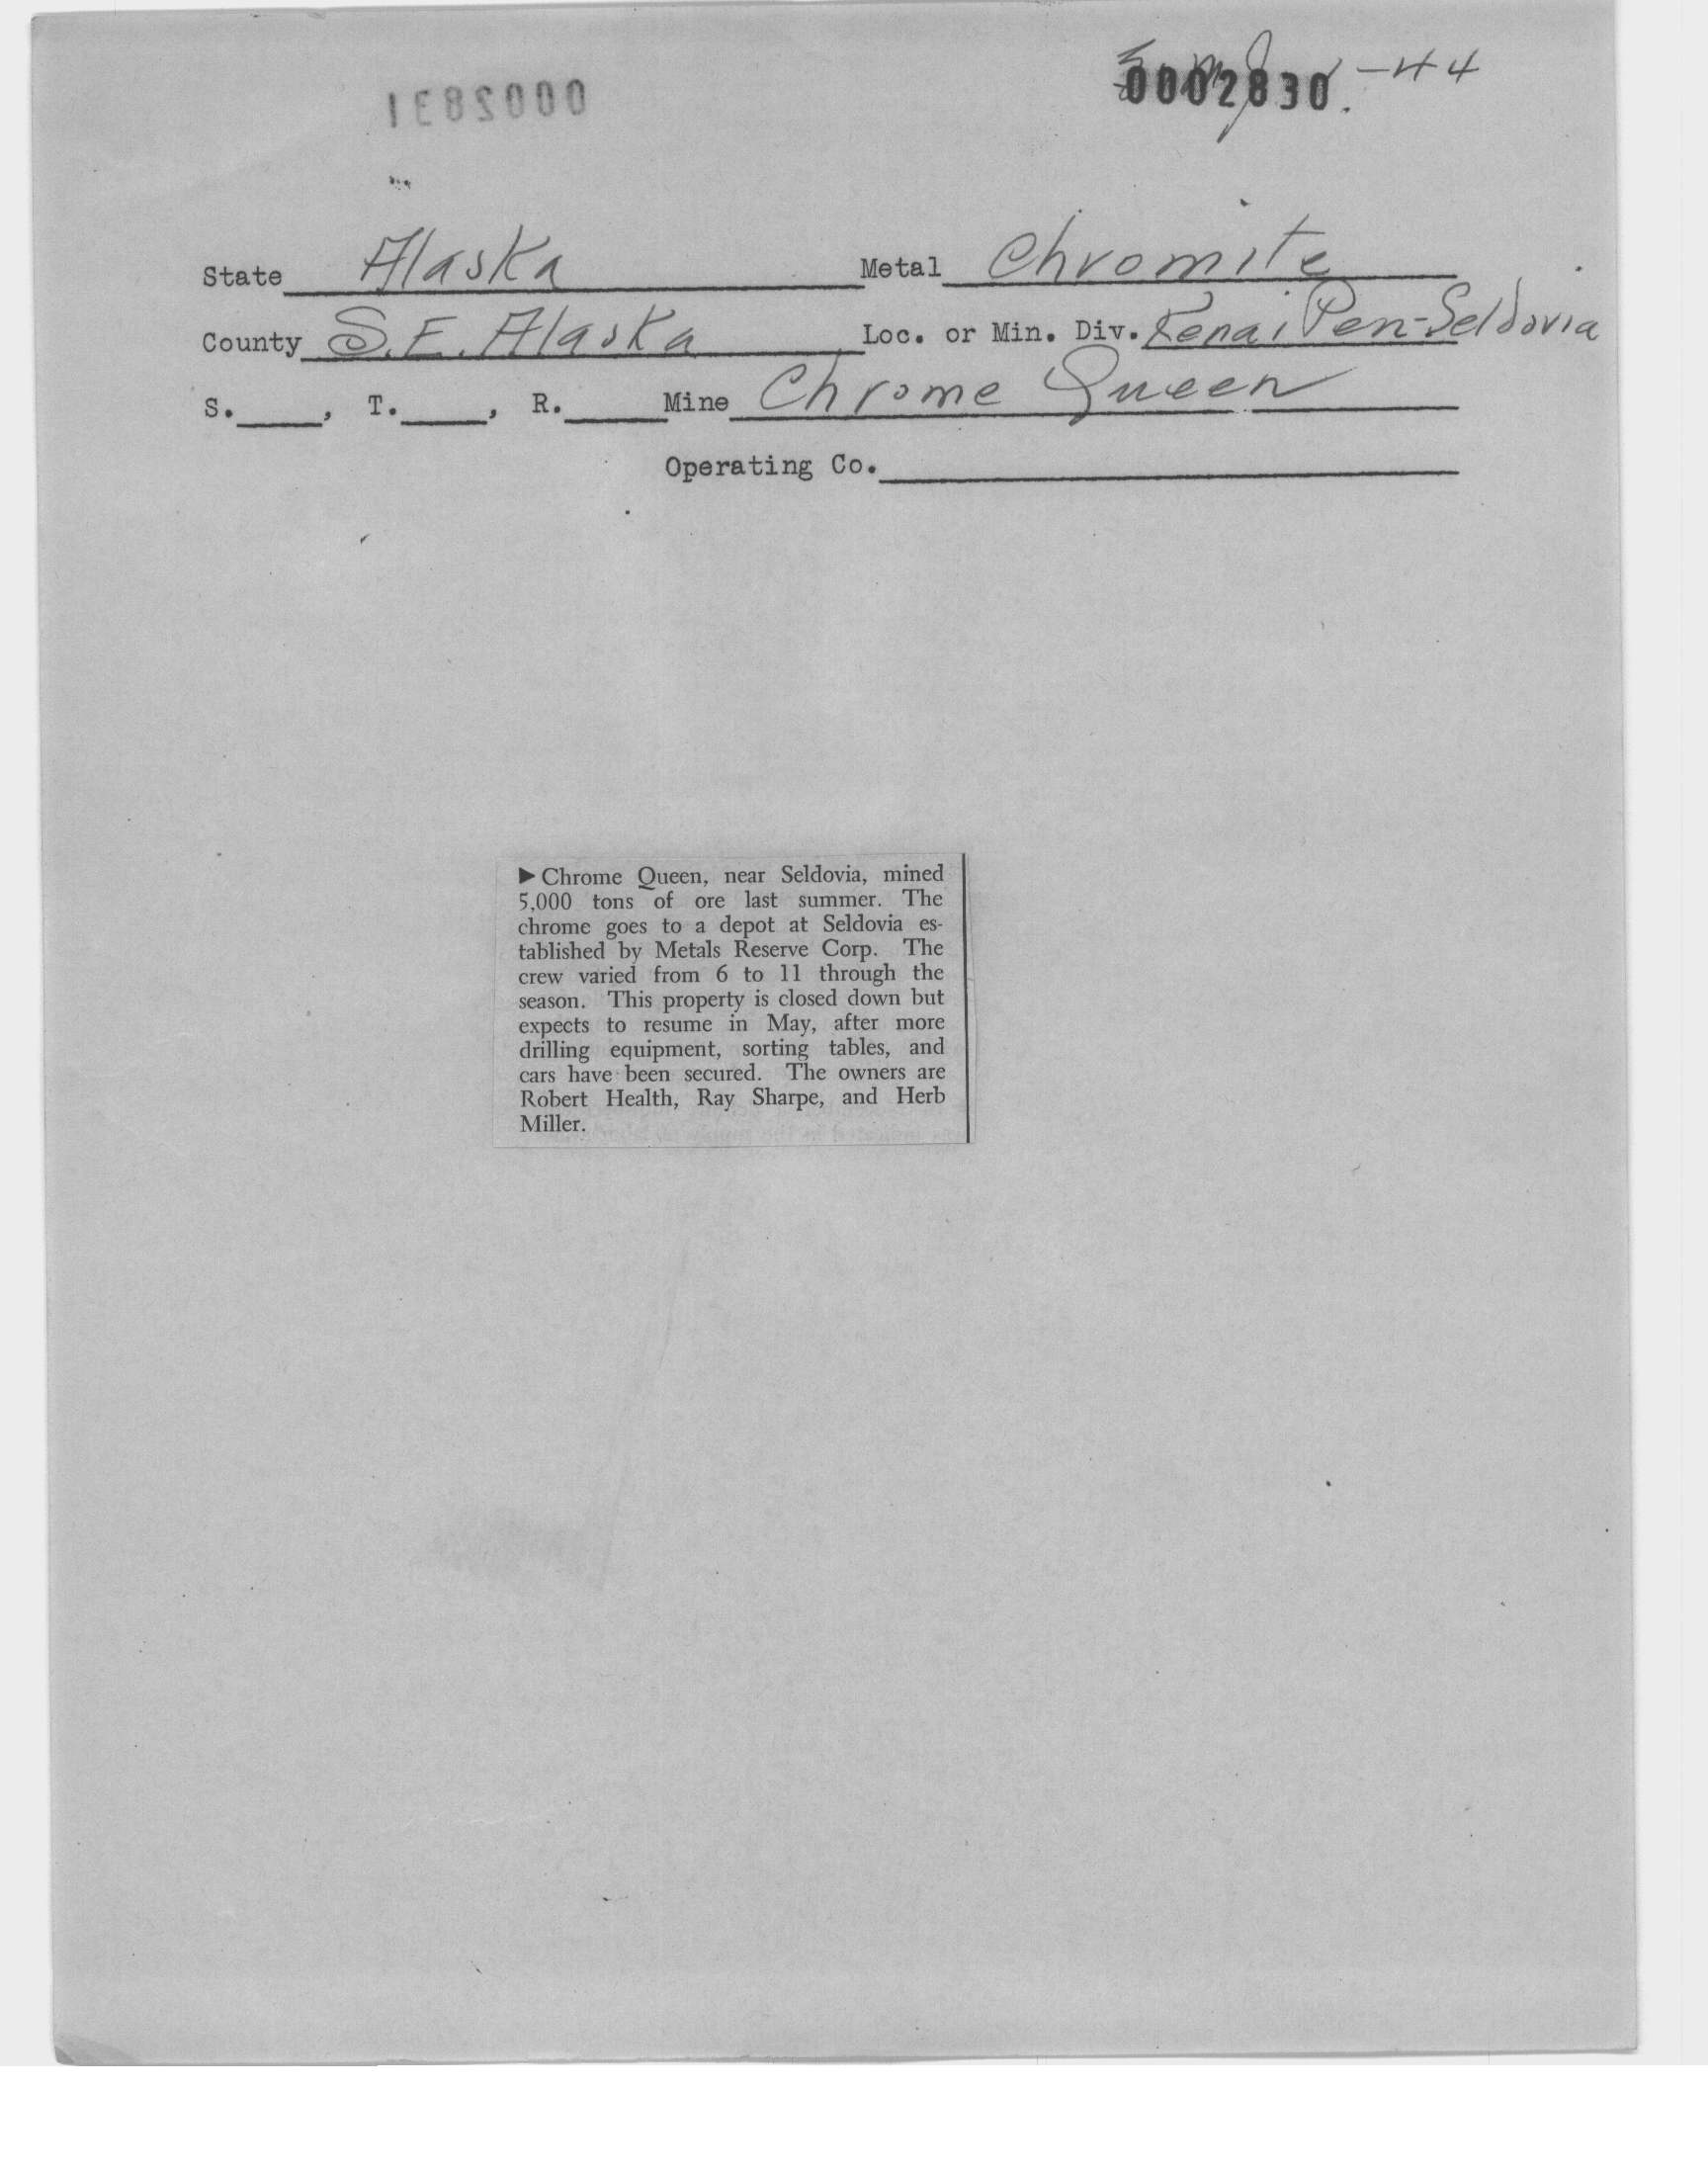 0002831
0002830. -44
State Alaska Metal Chromite
County S.E. Alaska Loc. or Min. Div. Kenai Pen-Seldovia
S.____, T.____, R.____ Mine Chrome Queen
Operating Co.
▶Chrome Queen, near Seldovia, mined
5,000 tons of ore last summer. The
chrome goes to a depot at Seldovia es-
tablished by Metals Reserve Corp. The
crew varied from 6 to 11 through the
season. This property is closed down but
expects to resume in May, after more
drilling equipment, sorting tables, and
cars have been secured. The owners are
Robert Health, Ray Sharpe, and Herb
Miller.